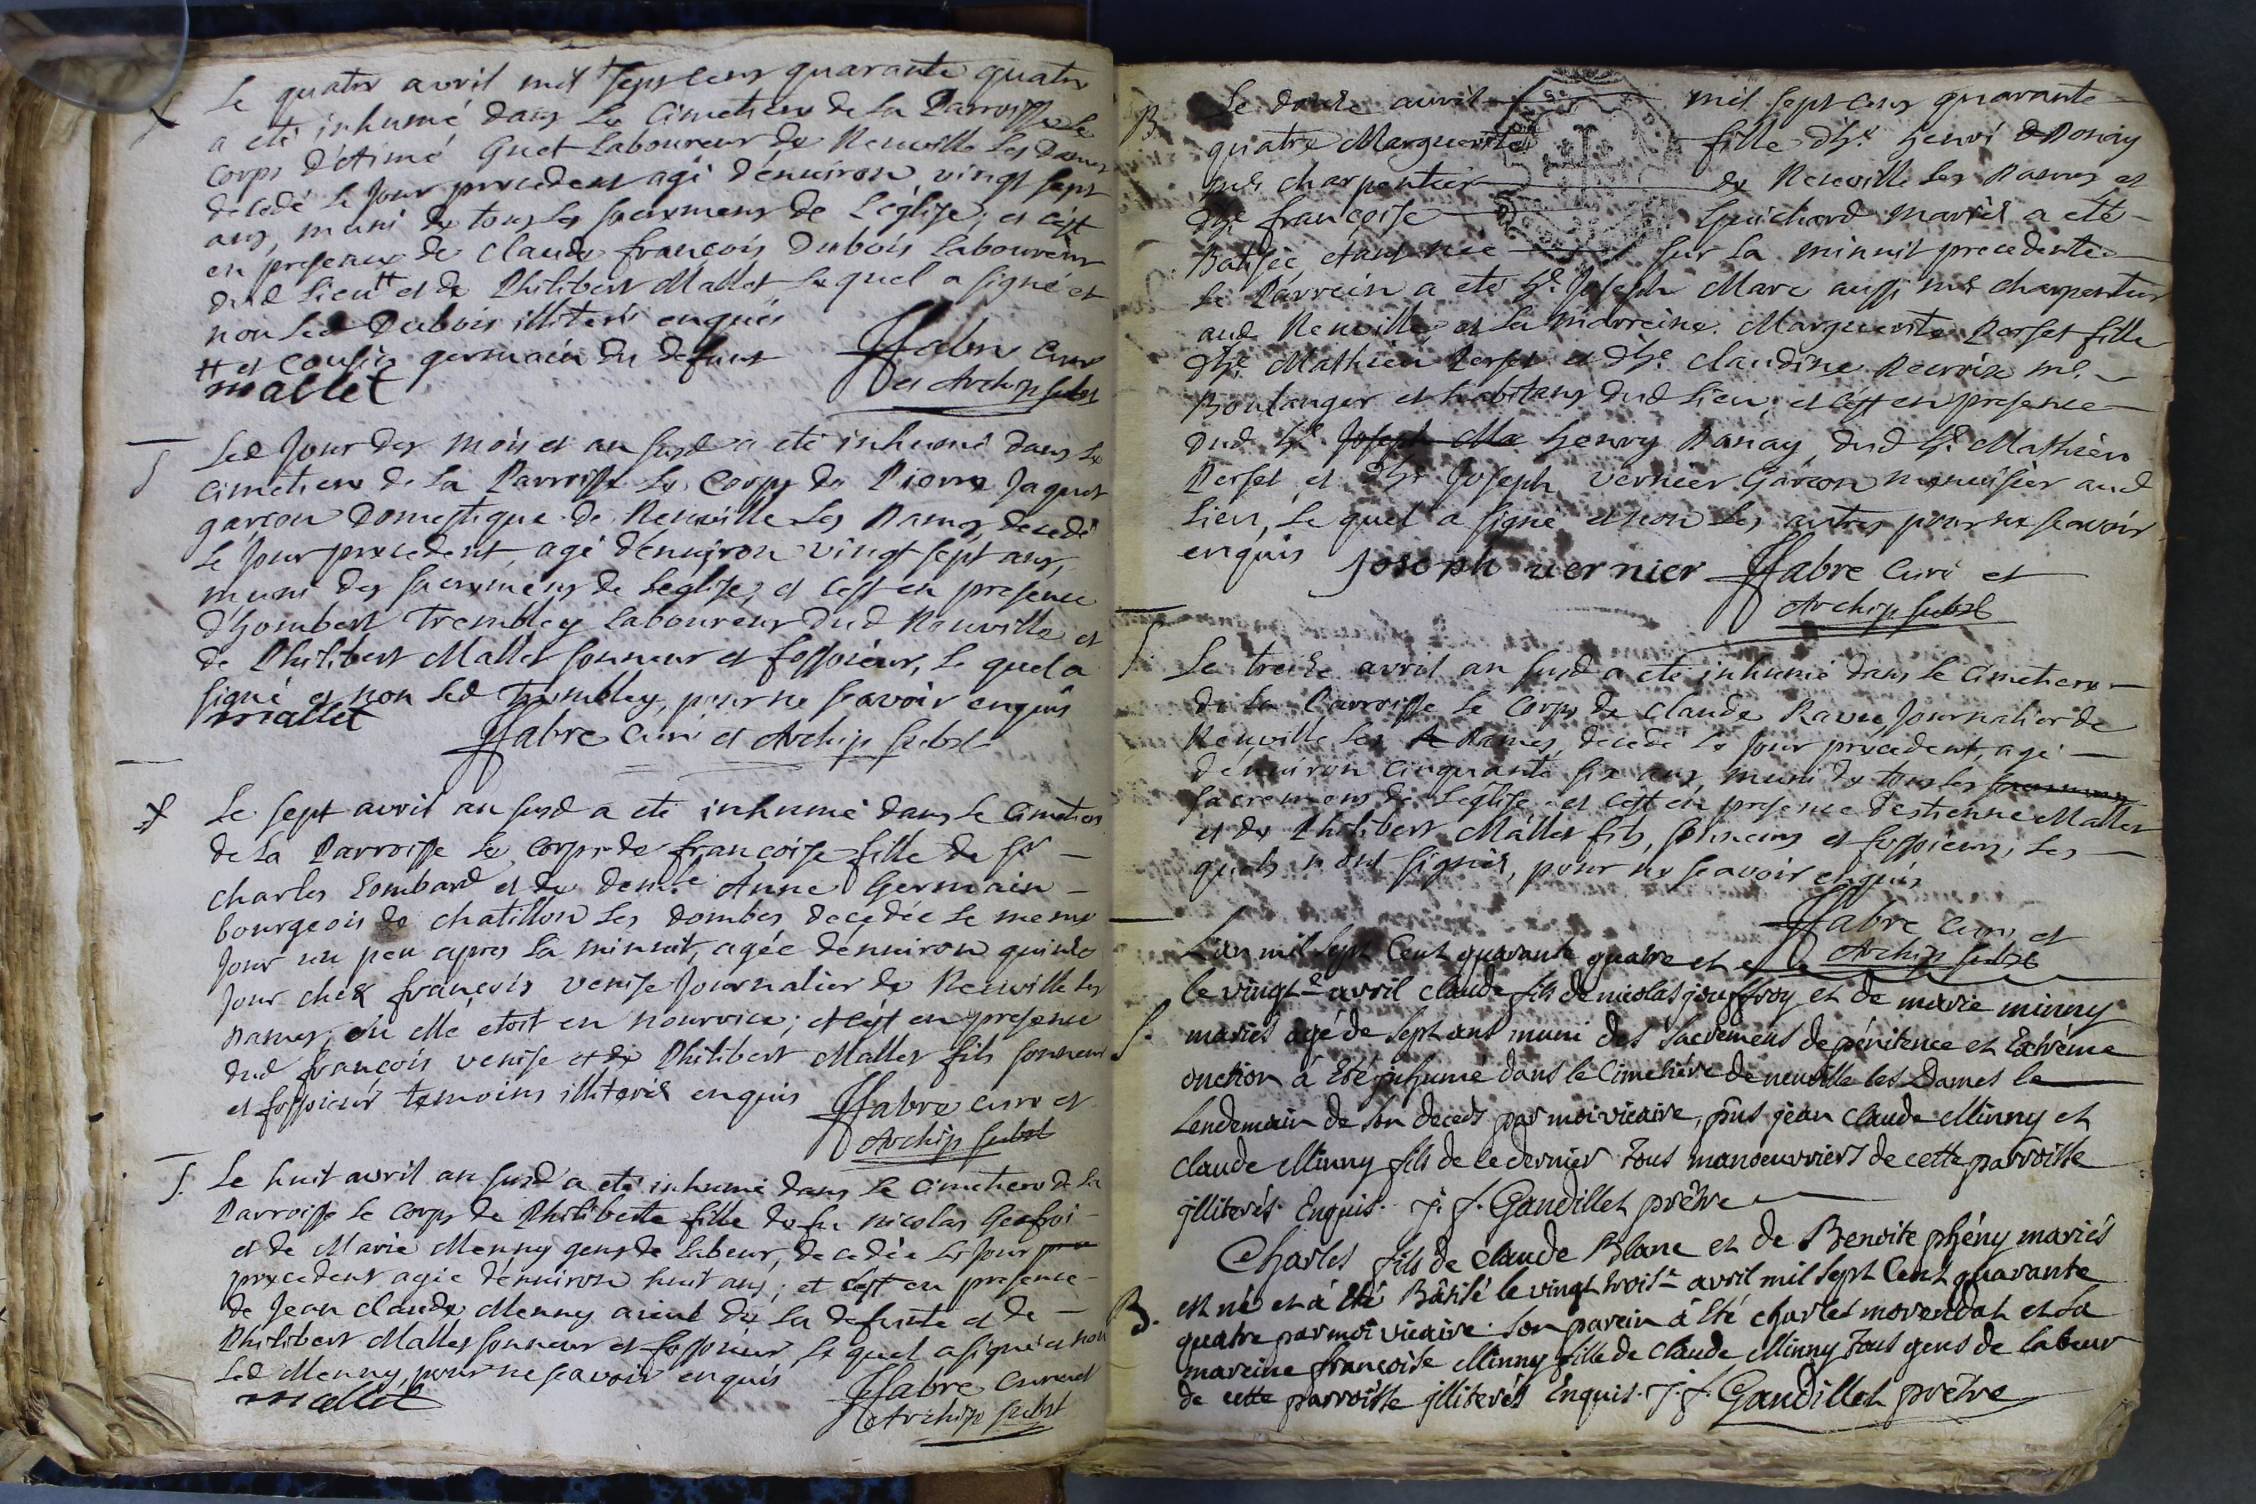 S
Le quatre avril mil sept cens quarante quatre
a eté inhumé dans le cimetiere de la Parroisse le
corps d'Etimé Guet Laboureur de Neuville les Dames
decedé le jour precedent agé d'enuiron vingt sept
ans, muni de tous les sacremens de L'église; et c'est
en presence de claude françois Dubois laboureur
dud lieu †† et de Philibert Mallet le quel a signé et
non led Dubois illiteré enquis
†† et cousin germain du defunt
mallet
Ffabre curé
et Archip subst
S
Led Jour des mois et an susd a eté inhumé dans le
cimetiere de la Parroisse le corps de Pierre Jaquet
garçon domestique de Neuville les Dames, decedé
le jour precedent, agé d'enuiron vingt sept ans,
muni des sacremens de L'eglise; et c'est en presence
d'Hombert Trembley laboureur dud Neuville et
de Philibert Mallet sonneur et fossoieur, le quel a
signé et non led Trembley, pour ne sçavoir enquis
mallet
Ffabre curé et Archip subst
S
Le sept avril an susd a eté inhumé dans le cimetiere
de la Parroisse le corps de françoise fille de sr
charles Lombard et de demle Anne Germain
bourgeois de chatillon les dombes decedée le meme
jour un peu apres la minuit, agée d'enuiron quinze
jour chez françois venise Journalier de Neuville les
Dames, ou elle etoit en nourrice; et c'est en presence
dud françois venise et de Philibert Mallet fils sonneur
et fossoieur temoins illiterés enquis
Ffabre curé et
Archip subst
S.
Le huit avril an susd a eté inhumé dans le cimetiere de la
Parroisse le corps de Philiberte fille de fu nicolas Geofroi
et de Marie Menny gens de labeur, decedée le jour pre
precedent agée d'enuiron huit ans; et c'est en presence
de Jean claude Menny aieul de la defunte et de
Philibert Mallet sonneur et fossoieur, le quel a signé et non
led Menny, pour ne sçavoir enquis
mallet
Ffabre curé et
Archip subst
B
Le douze avril mil sept cens quarante
quatre Marguerite fille d'hle henri Donay
me charpentier de Neuville les Dames et
d'hle françoise Guichard mariés a eté
Batisée, etant née sur la minuit precedente
le Parrein a eté hle Joseph Marc aussi me charpentier
aud Neuville, et la marreine Marguerite Perset fille
d'hle Mathieu Perset et d'hle claudine Recroix me
Boulanger et habitans dud lieu; et c'est en presence
dud hle Joseph Ma henry Danay, dud hle Mathieu
Perset, et d'hle Joseph vernier garçon menuisier aud
lieu, le quel a signé et non les autres pour ne sçavoir
enquis
Joseph vernier Ffabre curé et
Archip subst
S.
Le treize avril an susd a eté inhumé dans le cimetiere
de la Parroisse le corps de claude Ravu, Journalier de
Neuville les Dames, decedé le jour precedent, agé
d'enuiron cinquante six ans muni de tous les
sacremens de L'eglise et c'est en presence d'estienne Mallet
et de Philibert Mallet fils, sonneurs et fossoieurs, les
quels n'ont signés, pour ne sçavoir enquis
Ffabre curé et
Archip subst
L'an mil sept Cent quarante quatre et
le vingt e avril claude fils de nicolas jouffroy et de marie minny
S.
mariés agé de sept ans muni des sacremens de pénitence et Extréme
onction à Eté jnhumé dans le Cimetiére de neuville les Dames le
Lendemain de son decés par moi vicaire, pnts jean claude Minny et
claude Minny fils de le dernier tous manoeuvriers de cette parroisse
jlliterés. Enquis. J. f. Gaudillet prétre
Charles fils de claude Blanc et de Benoite phény mariés
B.
est né et à Eté Bâtisé le vingt trois e avril mil sept Cent quarante
quatre par moi vicaire. son parein à Eté charles morendat et la
mareine francoise Minny fille de Claude Minny tous gens de labeur
de cette parroisse jlliterés Enquis. J. f. Gaudillet prétre